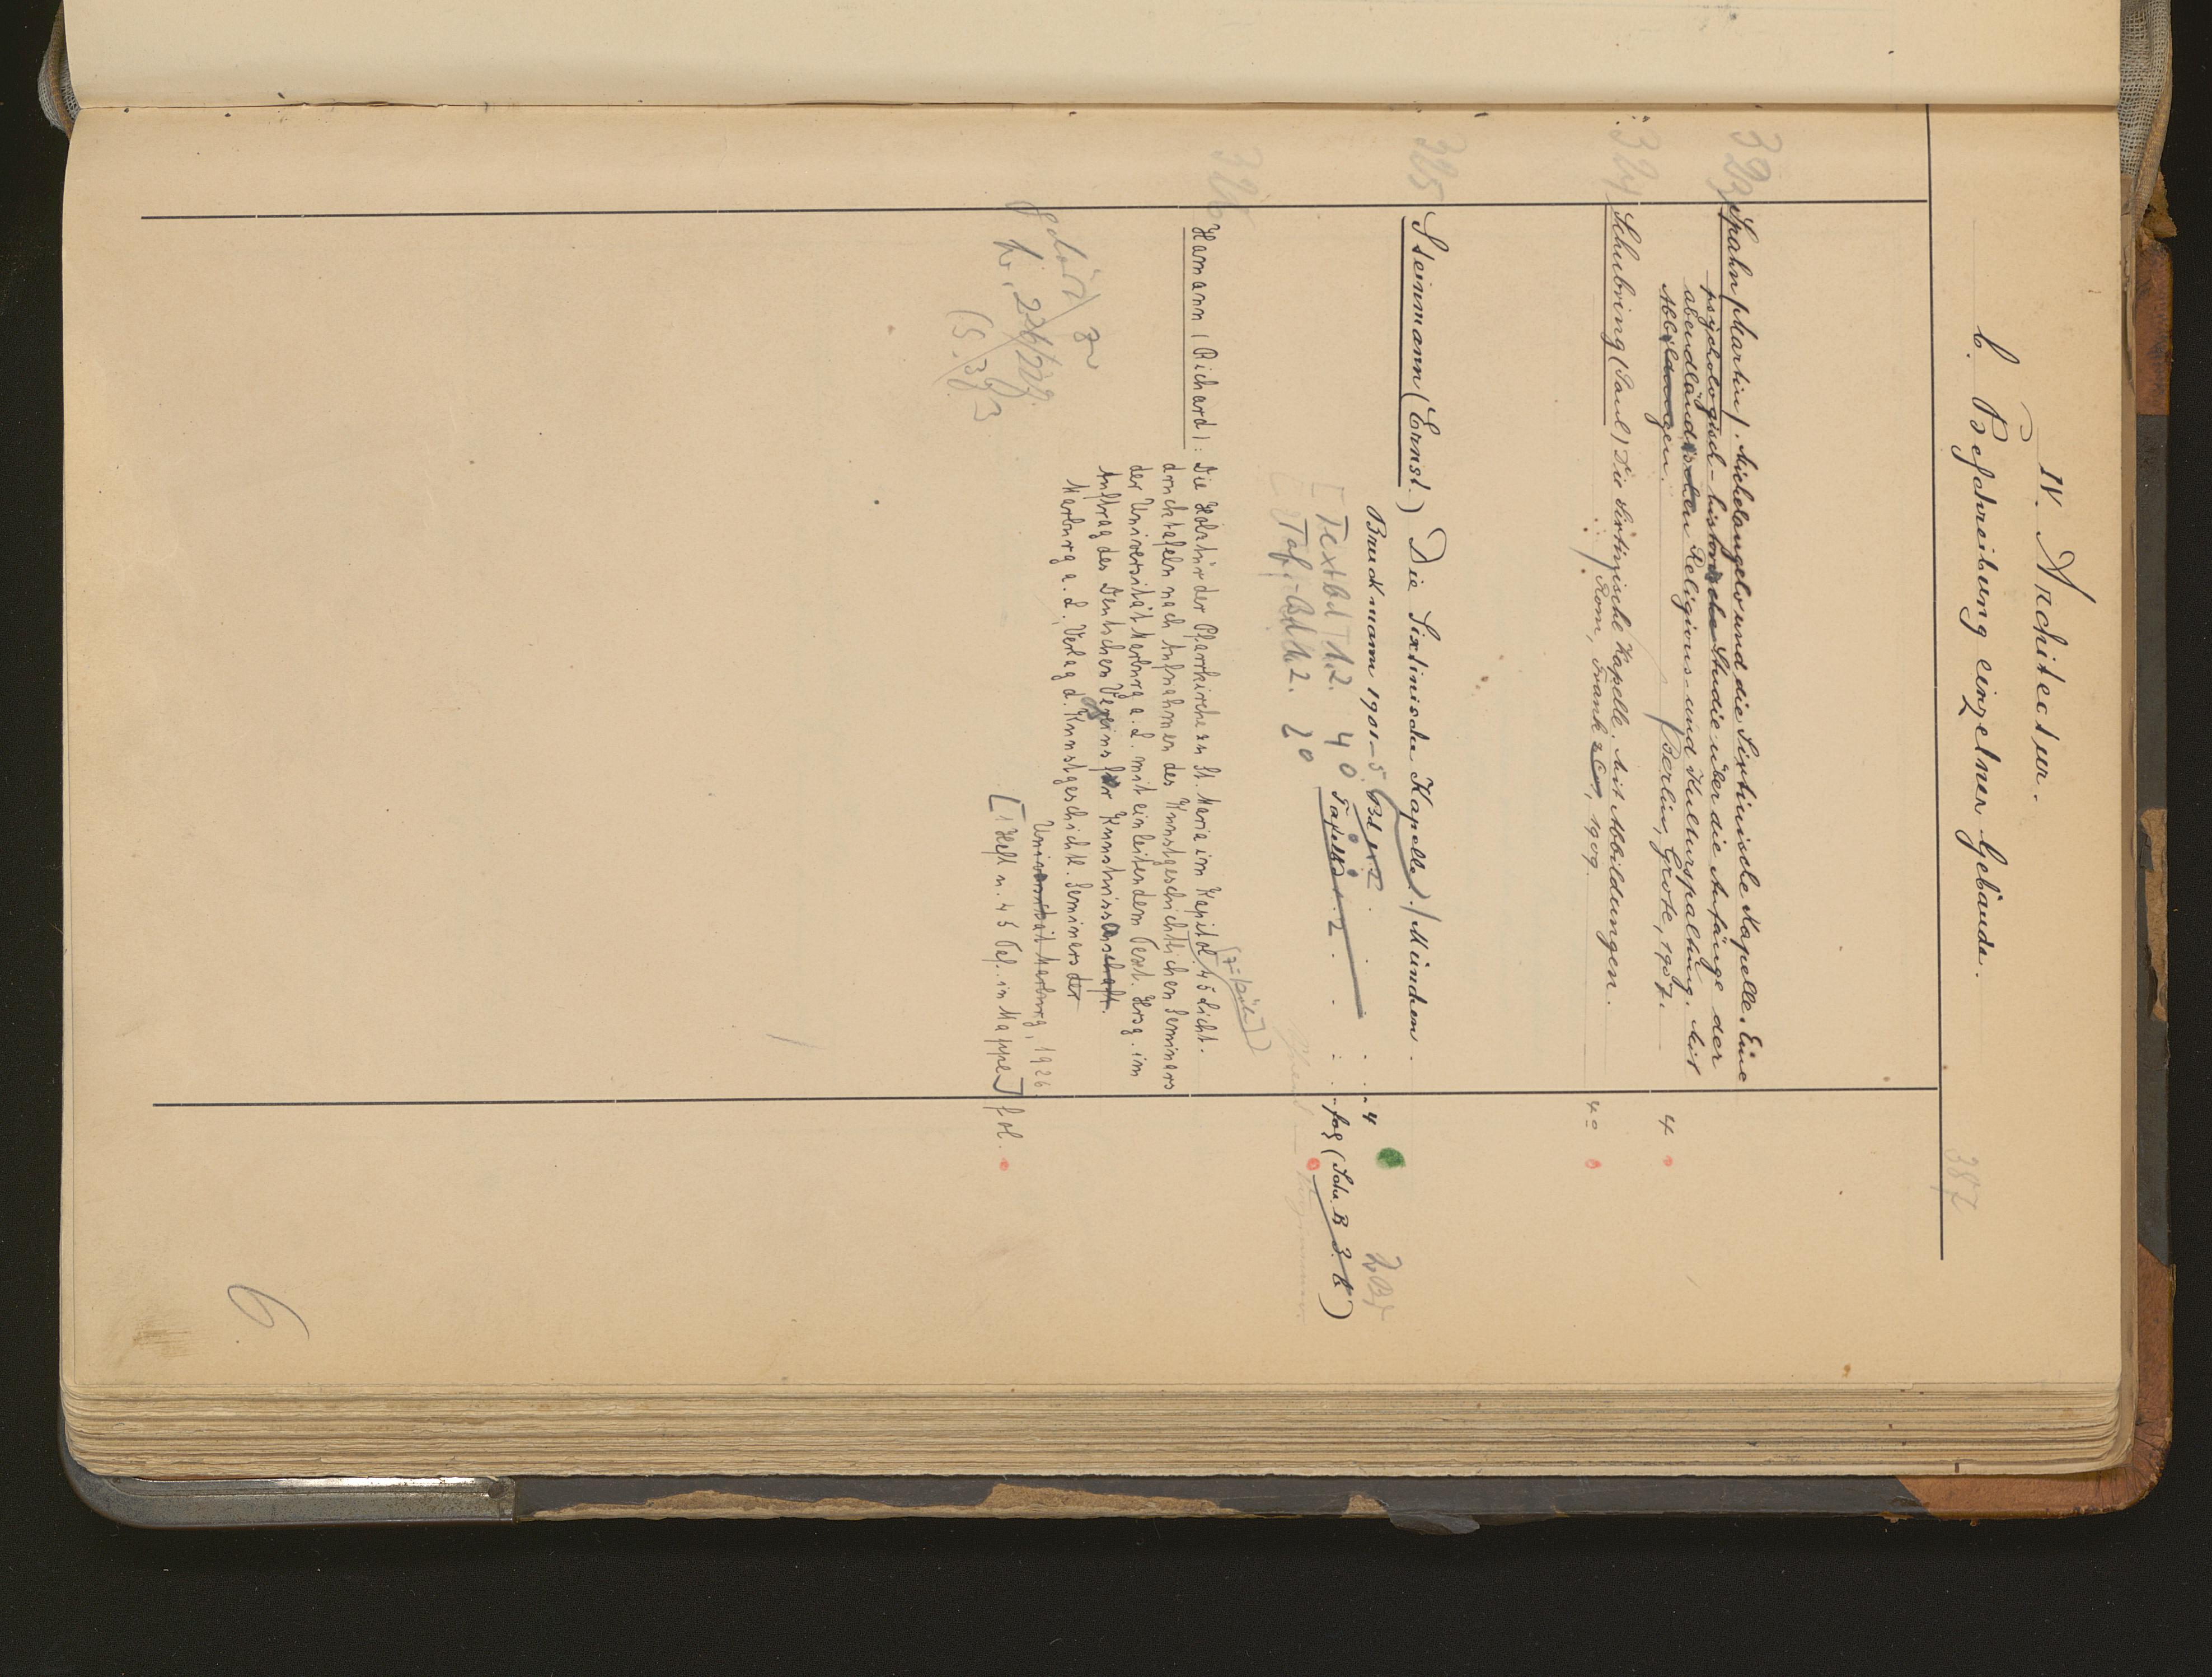 IV. Architectur.
b. Beschreibung einzelner Gebäude.
387
323 Spahn (Martin). Michelangelo und die Sixtinische Kapelle. Eine
psychologisch-historische Studie über die Anfänge der
abendländischen Religions- und Kulturspaltung. Mit
Abbildungen. / Berlin, Grote, 1907. 4
324 Schubring (Paul) Die Sixtinische Kapelle. Mit Abbildungen.
/ Rom, Frank & Co, 1909. 4°
325 Steinmann (Ernst.) Die Sixtinische Kapelle. / München.
Bruckmann 1901-5. Bd 1. 2. 4 2 Bd
Tafelbd 1. 2 fol (Schr. B 3. b)
[Textbd 1 1. 2. 40
Taf.-Bd 1. 2. 20
326 Hamann (Richard): Die Holztür der Pfarrkirche zu St. Maria im Kapitol. 45 Licht-
drucktafeln nach Aufnahmen des Kunstgeschichtlichen Seminars
der Universität Marburg a. L. mit einleitendem Text. Hrsg. im
Auftrag des Deutschen Vereins für Kunstwissenschaft.
Marburg a. L. Verlag d. Kunstgeschichtl. Seminars der
Universität Marburg, 1926.
[1 Heft u. 45 Taf. in Mappe] fol.
Gehört zu
Nr. 226/227
6